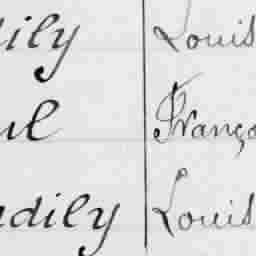 ily Louis
ul Franço
dily Louis